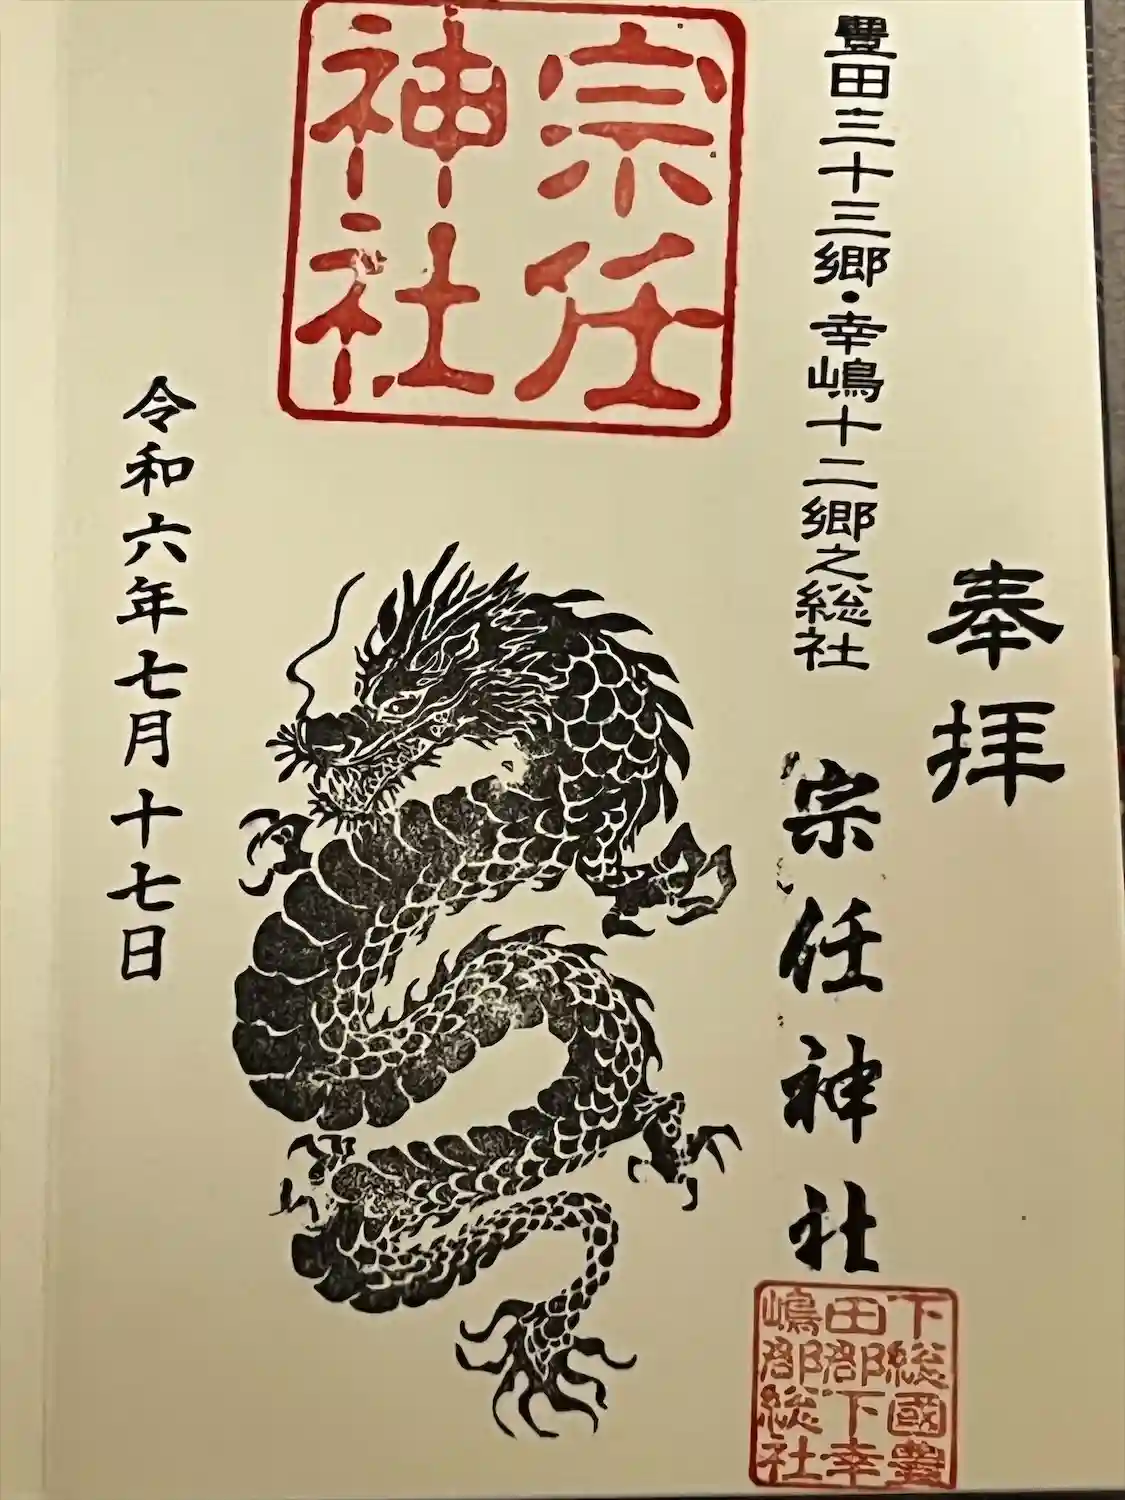 奉拝
豊田三十三郷・幸嶋十二郷之総社
宗任神社
宗任
神社
令和六年七月十七日
下総國豊
田郡下幸
嶋郡総社